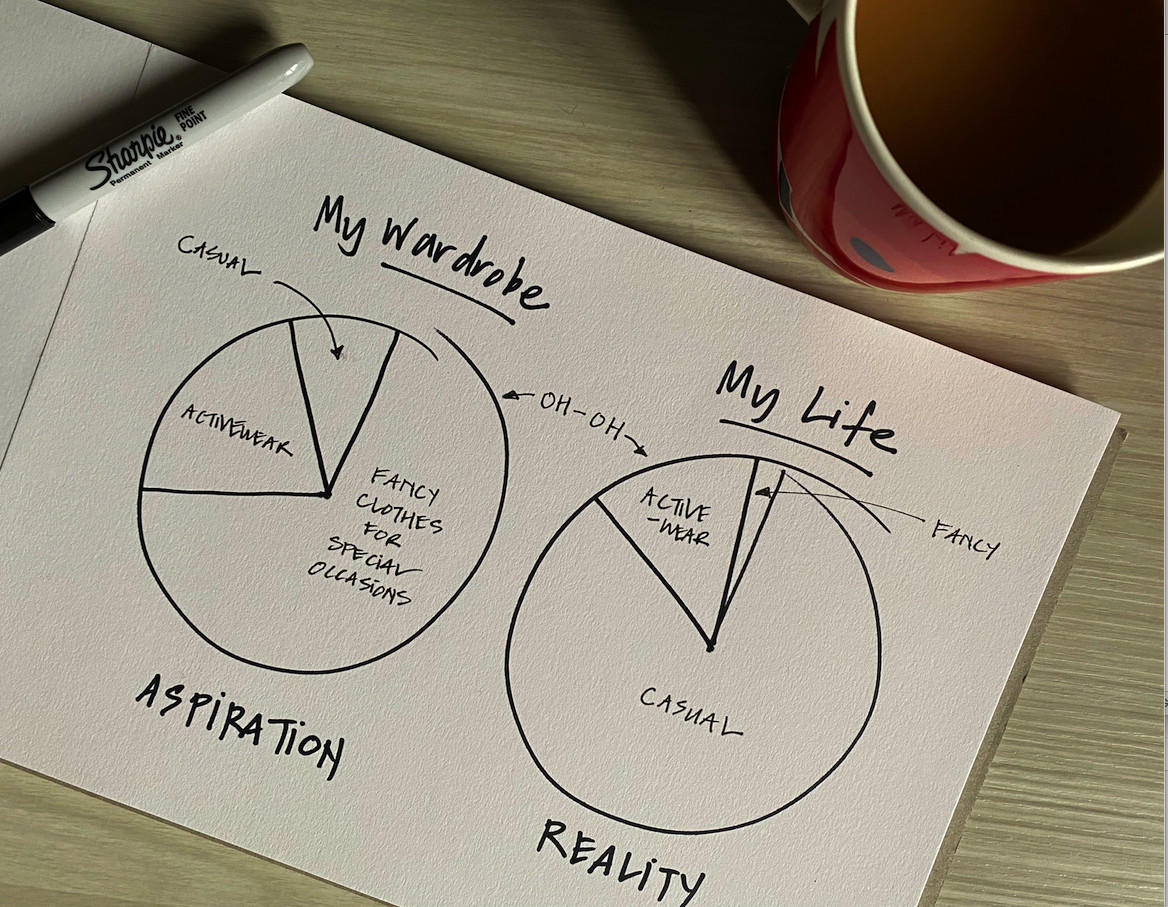 Sharpie
FINE
POINT
Permanent Marker
My Wardrobe
CASUAL
ACTIVEWEAR
FANCY
CLOTHES
FOR
SPECIAL
OCCASIONS
ASPIRATION
OH-OH
My Life
ACTIVE
-WEAR
FANCY
CASUAL
REALITY